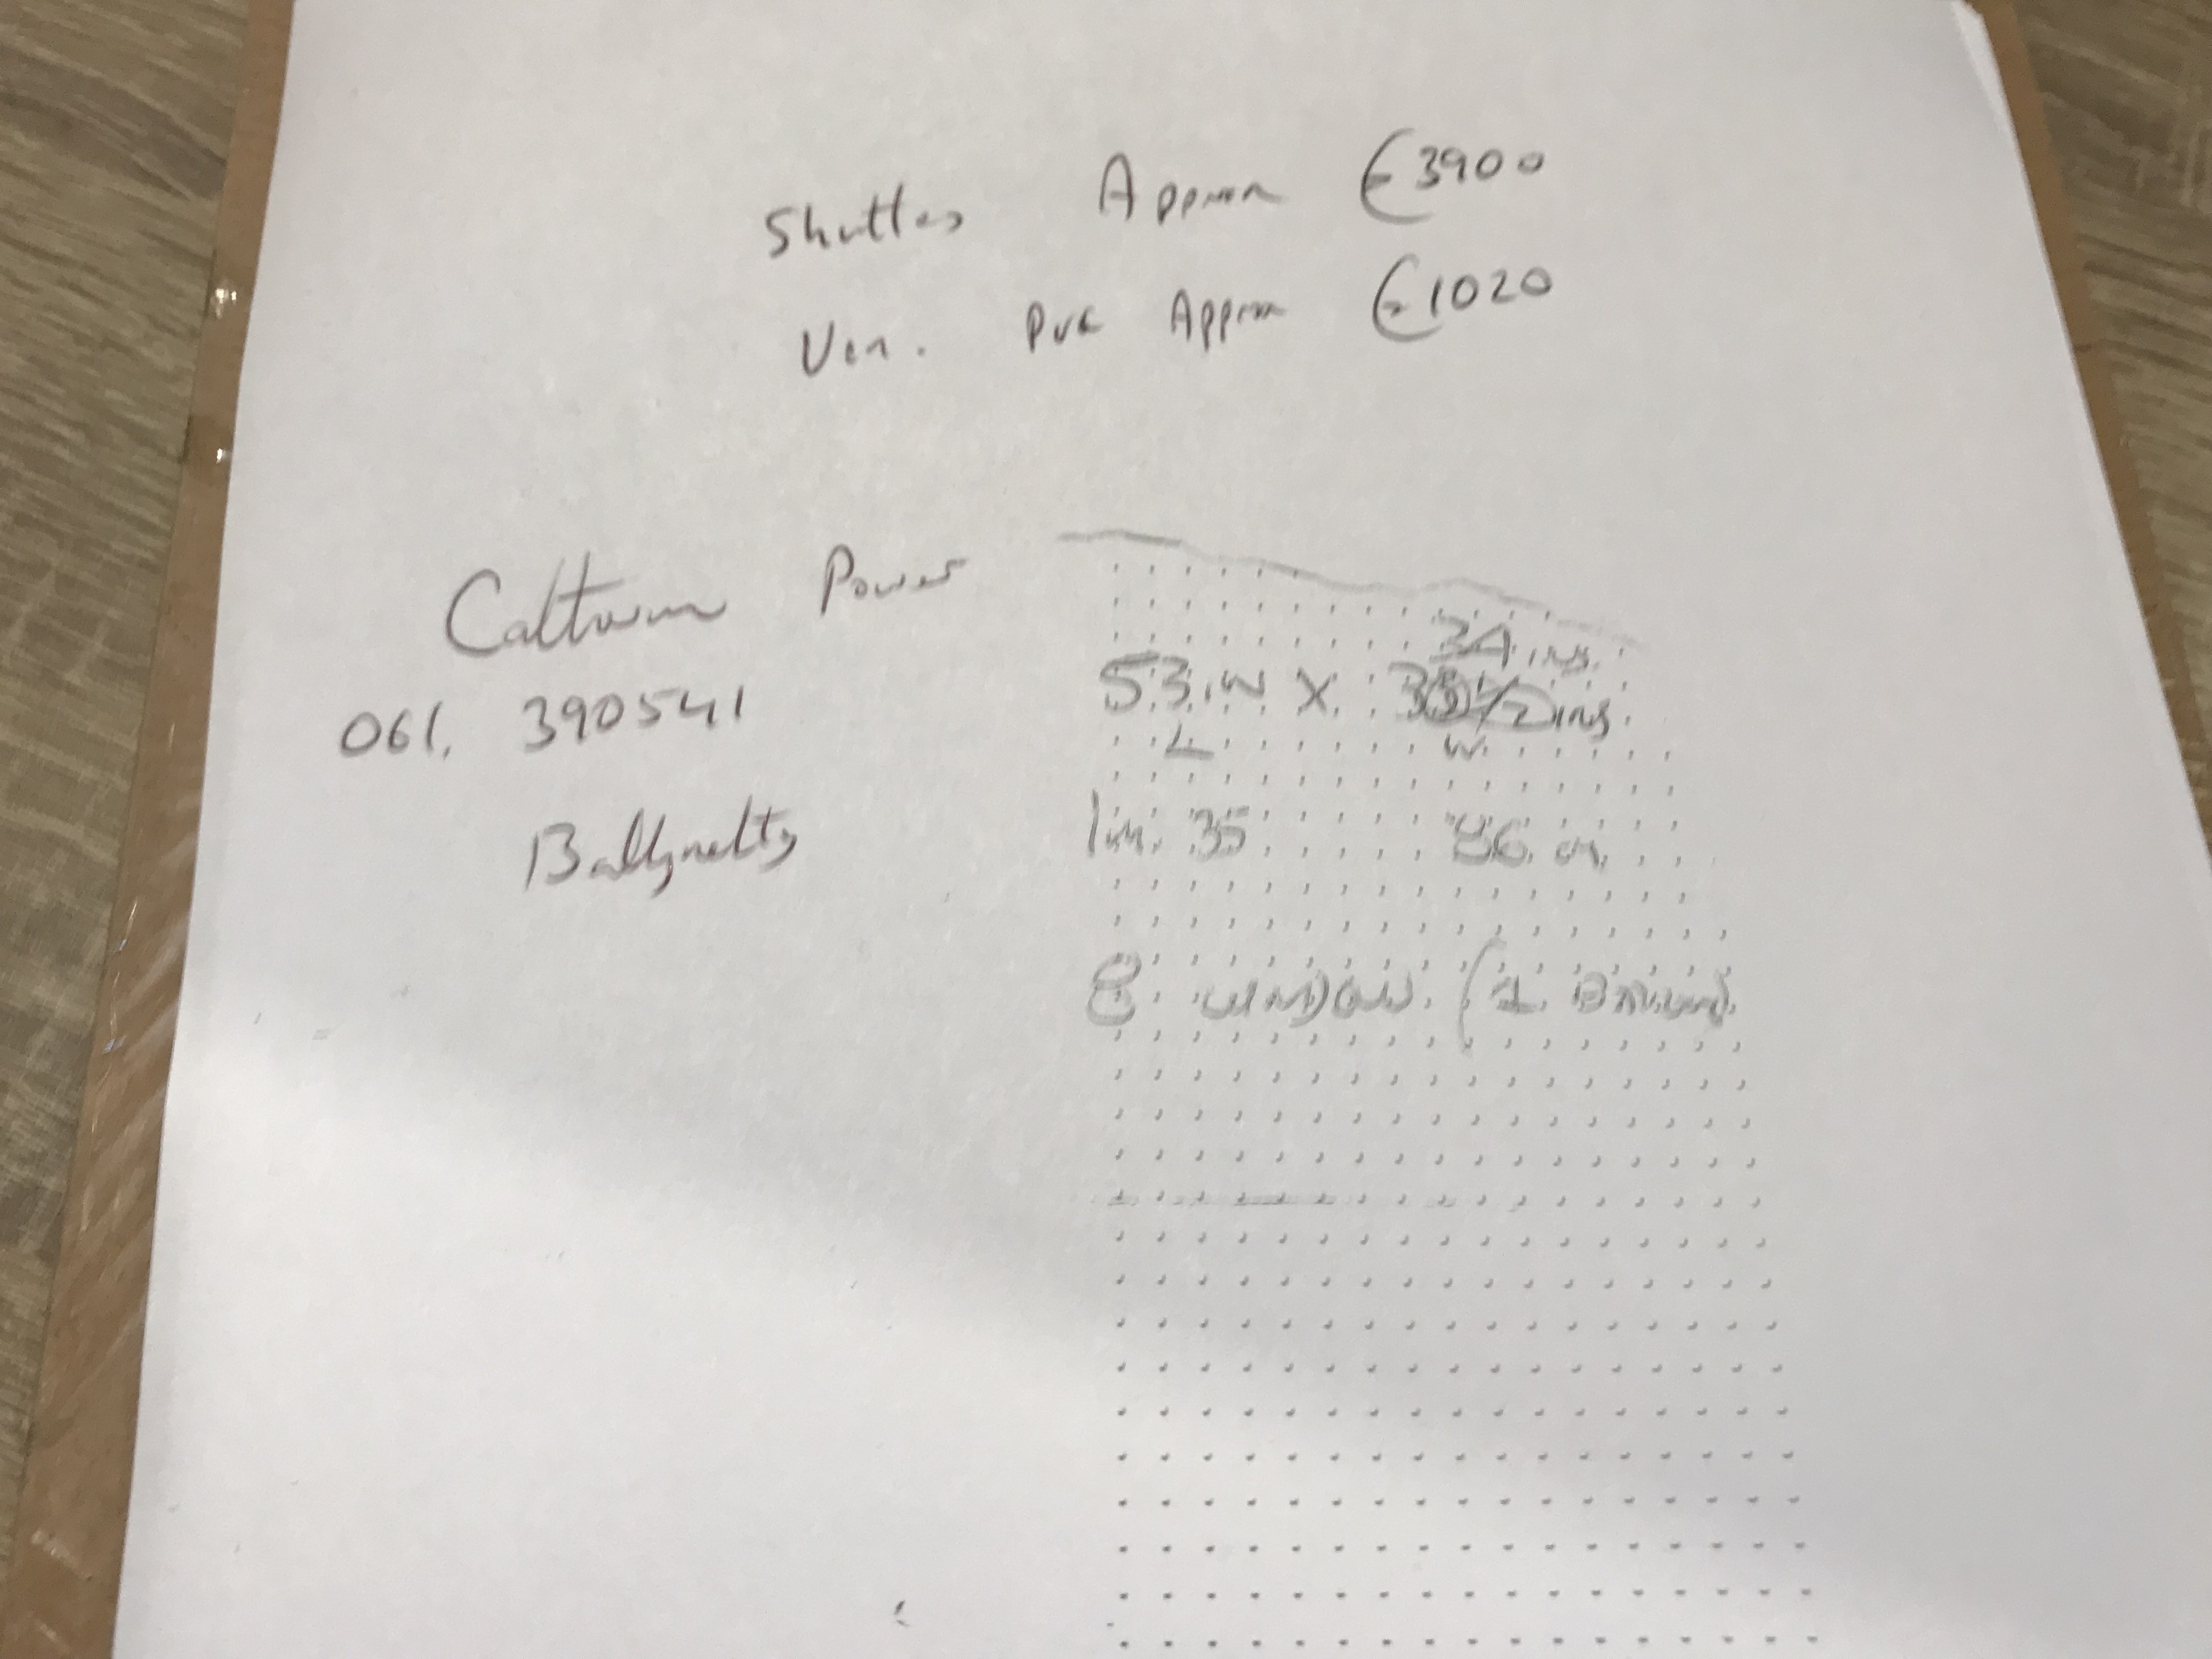 Shutters Approx €3900
Ven. PVC Approx €1020
Power
061. 390541
Ballyneety
34 ins.
53 IN X 33 1/2 ins
L W
1m. 35 86 cm
8 WINDOW (1 BAthroom)